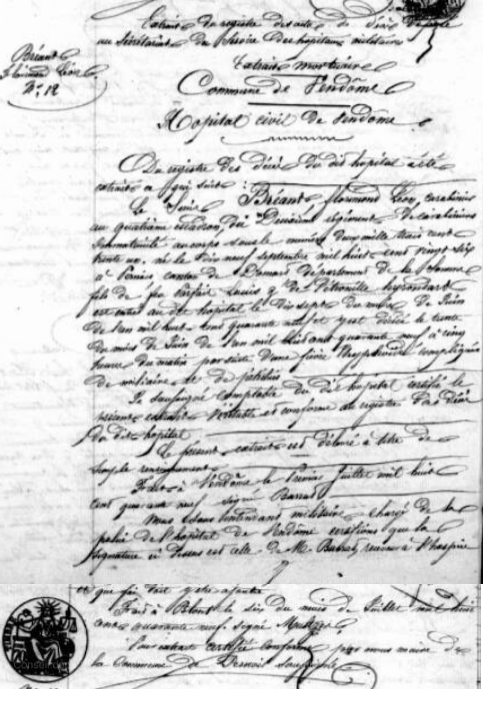 Extrait du registre des actes de Décès
au Secrétariat du Service des hôpitaux militaires
Bréant
Florimond Léon
N° 12
Extrait mortuaire
Commune de Vendôme
Hôpital civil de Vendôme
Du registre des décès du dit hôpital a été
extrait ce qui suit :
Le Sieur Bréant florimond Léon, carabinier
au quatrième escadron du Deuxième régiment de carabiniers
immatriculé au corps sous le numéro deux mille trois cent
trente un, né le dix neuf septembre mil huit cent vingt six
à canton de département de la Somme
fils de feu Parfait et de Pétronille
est entré au dit hôpital le dix sept du mois de Juin
de l'an mil huit cent quarante neuf et y est décédé le trente
du mois de Juin de l'an mil huit cent quarante neuf à cinq
heures du matin par suite d'une fièvre compliquée
de miliaire et de
Je soussigné comptable du dit hôpital certifie le
présent extrait véritable et conforme au registre des décès
du dit hôpital
Le présent extrait est délivré à titre de
simple renseignement
Fait à Vendôme le Premier Juillet mil huit
cent quarante neuf signé
Nous Sous intendant militaire chargé de la
police de l'hôpital de Vendôme certifions que la
signature ci dessus est celle de M. à l'hospice
et que foi doit y être ajoutée
Fait à le six du mois de Juillet mil huit
cent quarante neuf. signé
Pour extrait certifié conforme par nous maire de
la Commune de